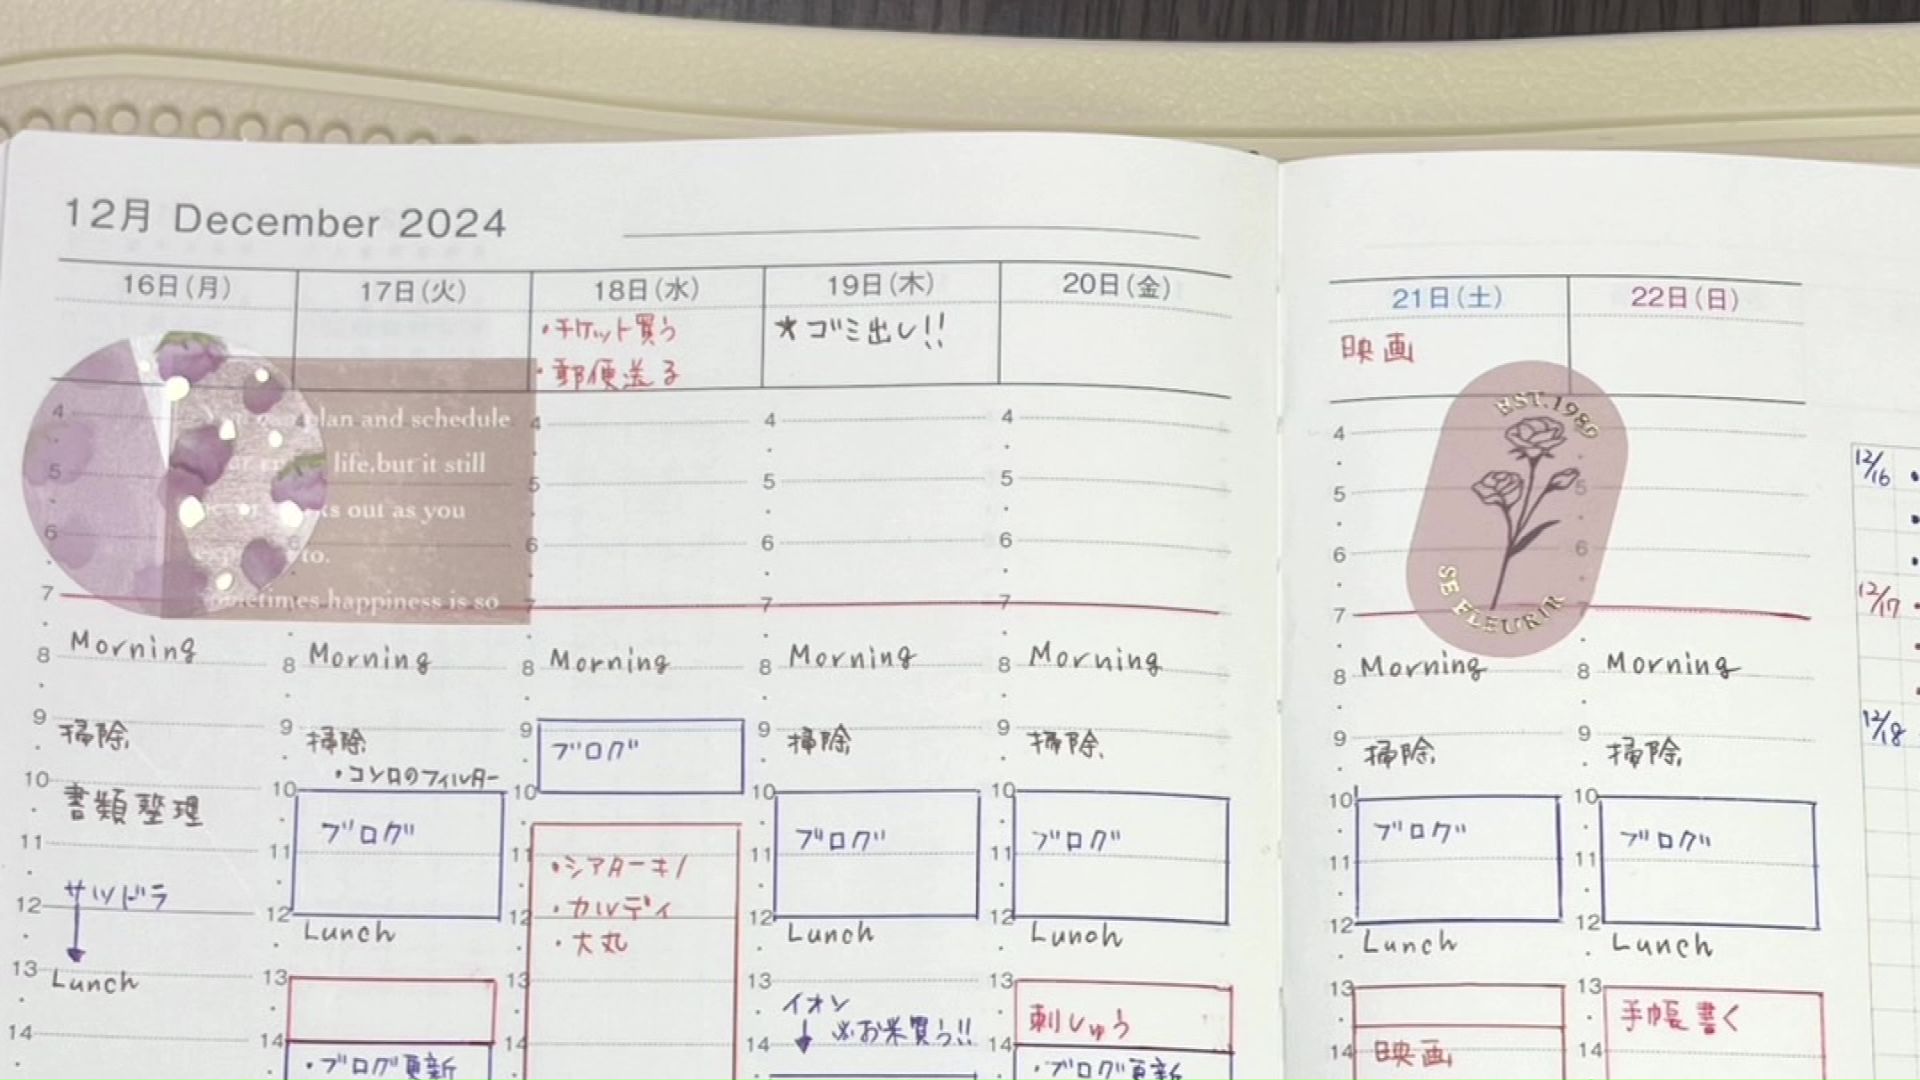 12月 December 2024
16日(月)
17日(火)
18日(水)
19日(木)
20日(金)
21日(土)
22日(日)
・チケット買う
・郵便送る
★ゴミ出し!!
映画
plan and schedule
life,but it still
out as you
to.
happiness is so
EST.1989
SE FLEURIR
4
5
6
7
8 Morning
9 掃除
10 書類整理
11
サツドラ
12
13 Lunch
14
8 Morning
9 掃除
・コンロのフィルター
10
ブログ
11
12 Lunch
13
14
・ブログ更新
4
5
6
7
8 Morning
9 ブログ
10
11 ・シアターキノ
12 ・カルディ
・大丸
13
14
4
5
6
7
8 Morning
9 掃除
10
ブログ
11
12 Lunch
13 イオン
14 ※お米買う!!
4
5
6
7
8 Morning
9 掃除
10
ブログ
11
12 Lunch
13 刺しゅう
14
・ブログ更新
4
5
6
7
8 Morning
9 掃除
10
ブログ
11
12 Lunch
13
14 映画
5
6
7
8 Morning
9 掃除
10
ブログ
11
12 Lunch
13 手帳書く
14
12/16
12/17
12/18